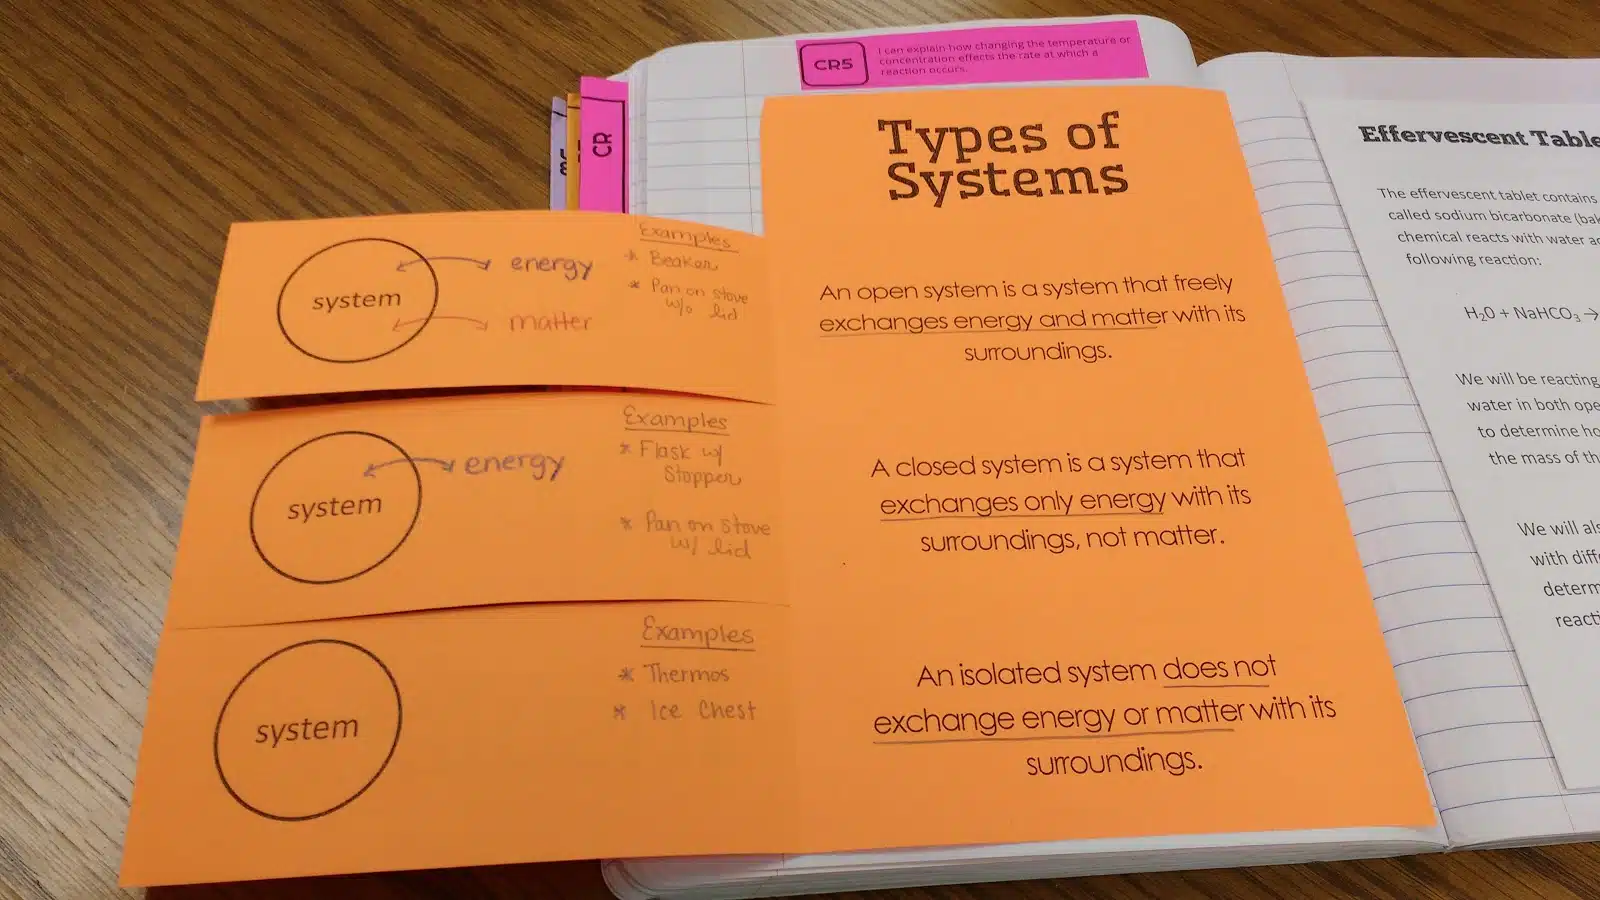 CR5
I can explain how changing the temperature or
concentration effects the rate at which a
reaction occurs.
CR
Types of
Systems
system
energy
matter
Examples
* Beaker
* Pan on stove
w/o lid
An open system is a system that freely
exchanges energy and matter with its
surroundings.
system
energy
Examples
* Flask w/
Stopper
* Pan on stove
w/ lid
A closed system is a system that
exchanges only energy with its
surroundings, not matter.
system
Examples
* Thermos
* Ice Chest
An isolated system does not
exchange energy or matter with its
surroundings.
Effervescent
The effervescent tablet contains
called sodium bicarbonate
chemical reacts with water
following reaction:
H₂O + NaHCO₃ →
We will be reacting
water in both
to determine
the mass of
We will
with